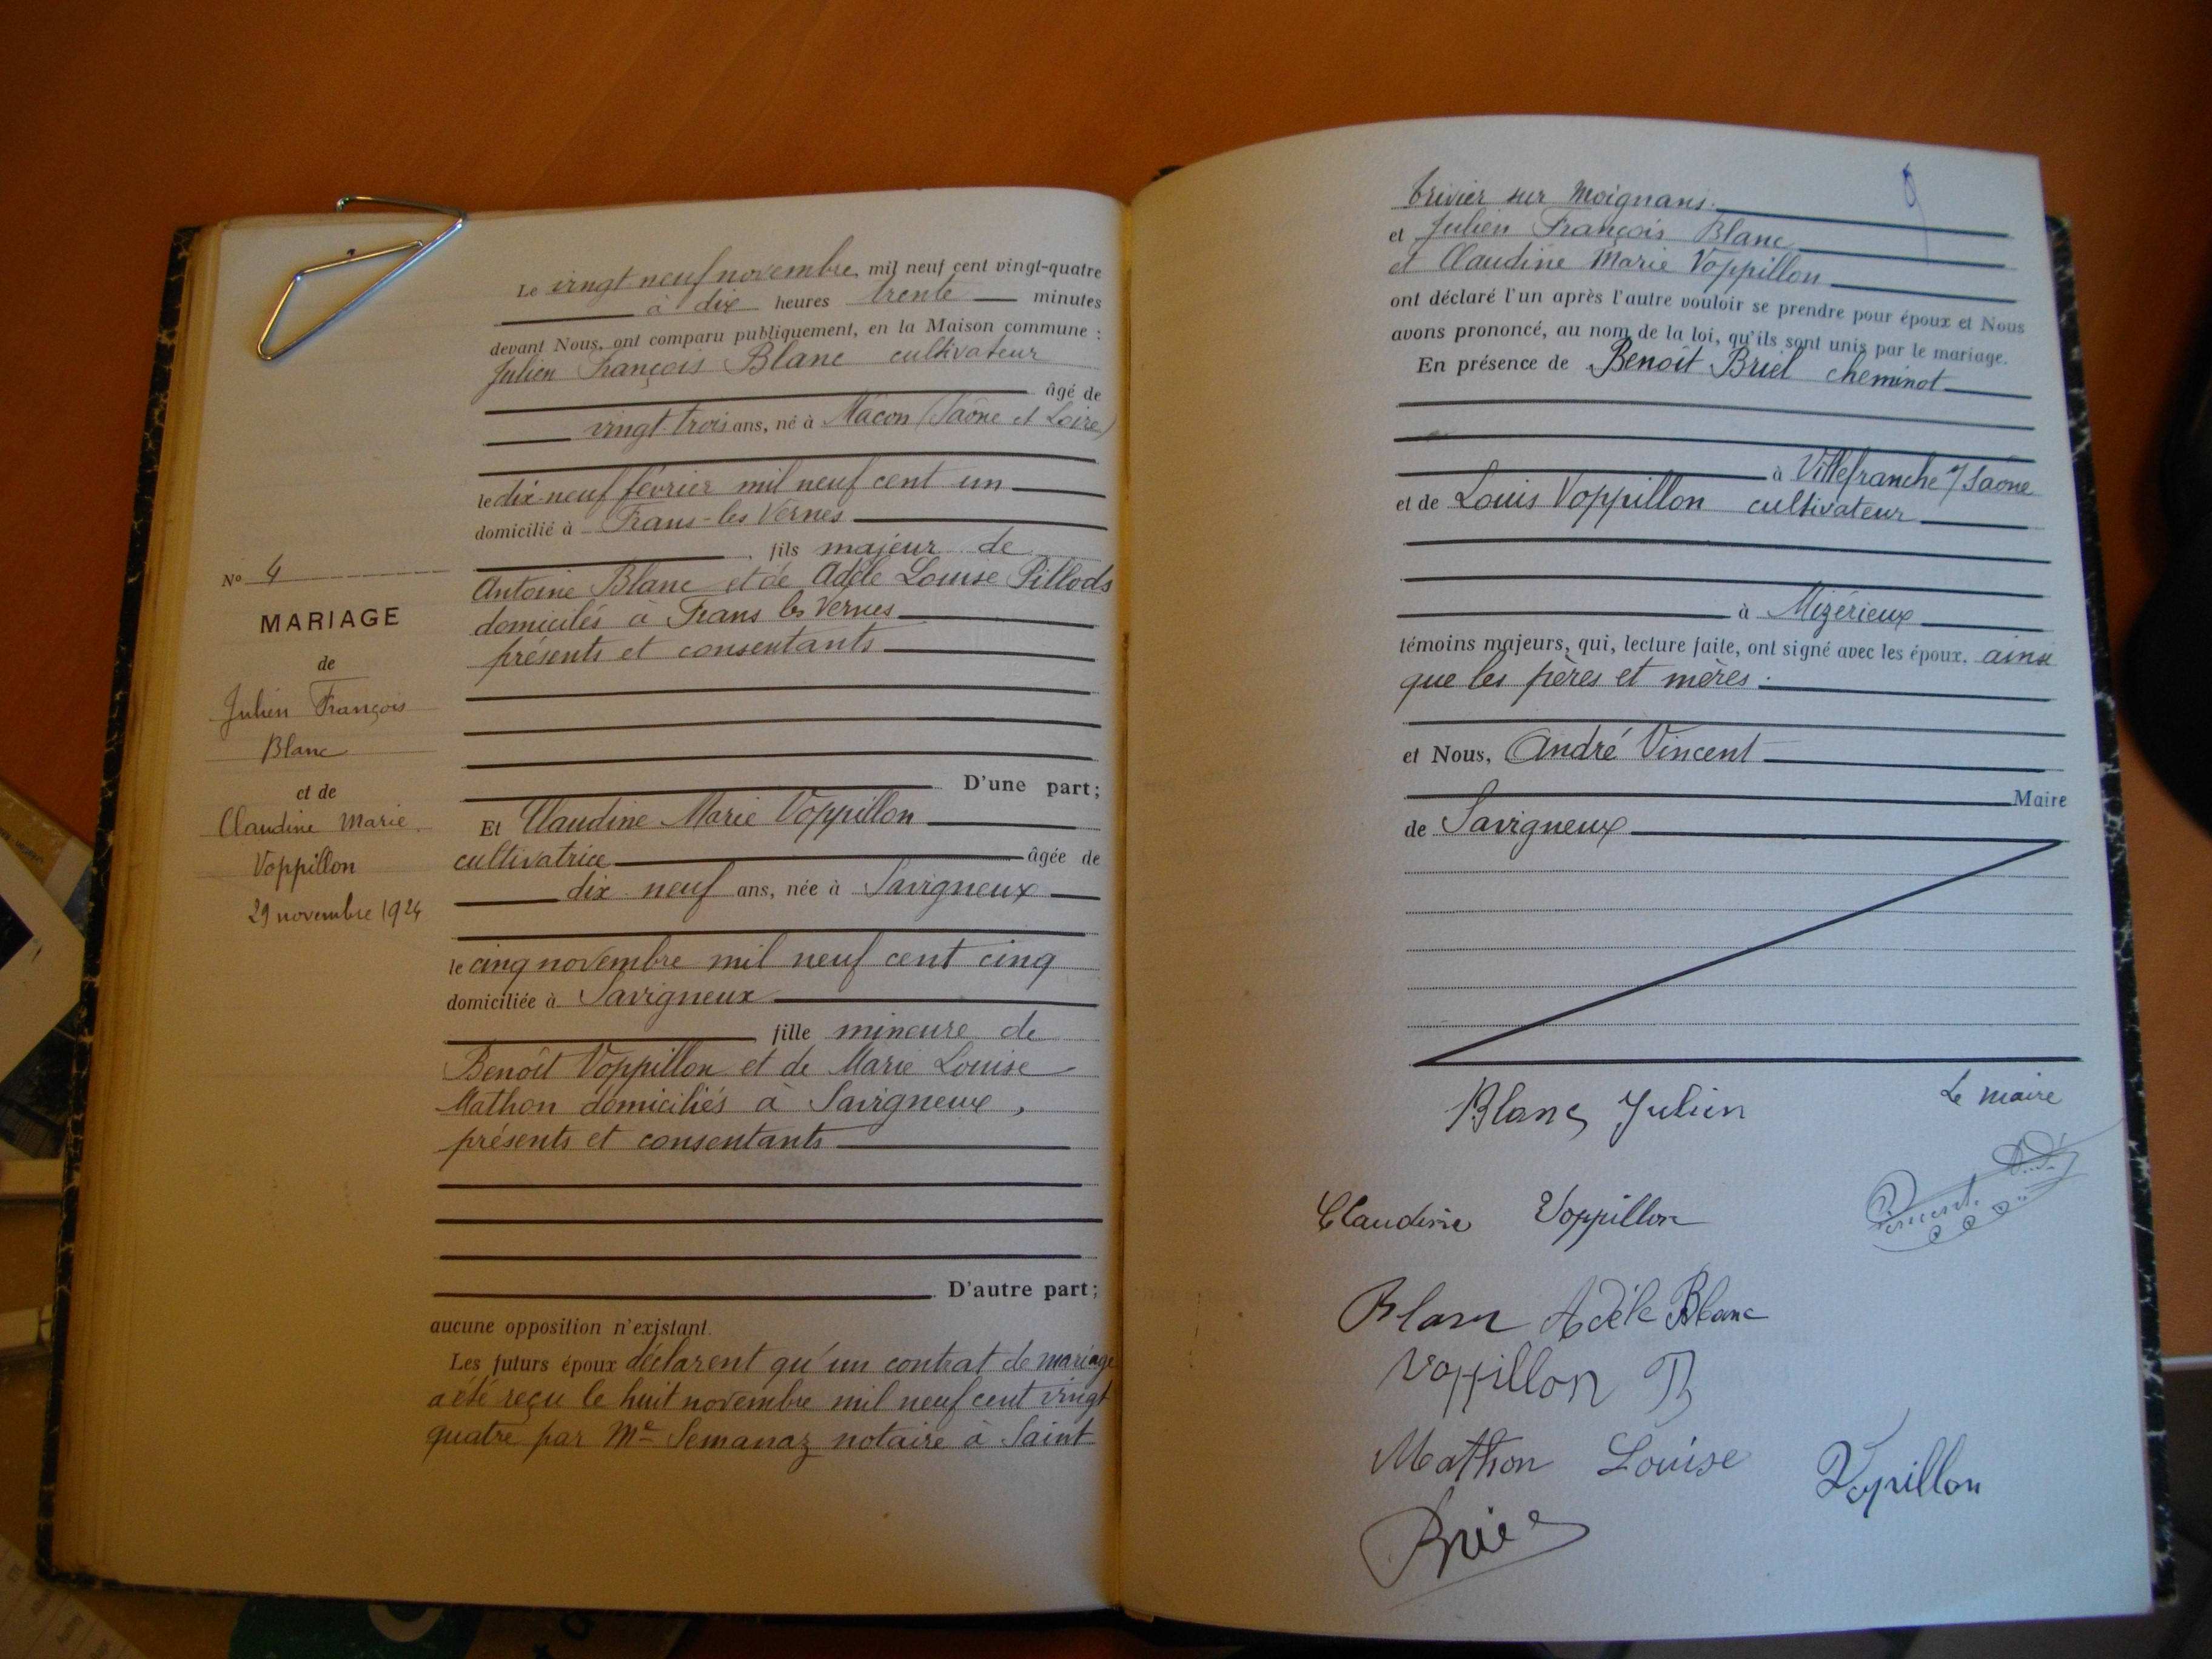 Le vingt neuf novembre mil neuf cent vingt-quatre
à dix heures trente minutes
devant Nous, ont comparu publiquement, en la Maison commune :
Julien François Blanc cultivateur
âgé de
vingt trois ans, né à Mâcon (Saône et Loire)
le dix-neuf février mil neuf cent un
domicilié à Frans-les Vernes
fils majeur de
Antoine Blanc et de Adèle Louise Pillods
domiciliés à Frans les Vernes
présents et consentants
D'une part;
Et Claudine Marie Voppillon
cultivatrice âgée de
dix neuf ans, née à Savigneux
le cinq novembre mil neuf cent cinq
domiciliée à Savigneux
fille mineure de
Benoît Voppillon et de Marie Louise
Mathon domiciliés à Savigneux,
présents et consentants
D'autre part;
aucune opposition n'existant.
Les futurs époux déclarent qu'un contrat de mariage
a été reçu le huit novembre mil neuf cent vingt
quatre par Me Semanaz notaire à Saint
No 4
MARIAGE
de
Julien François
Blanc
et de
Claudine Marie
Voppillon
29 novembre 1924
9
trivier sur Moignans.
et Julien François Blanc
et Claudine Marie Voppillon
ont déclaré l'un après l'autre vouloir se prendre pour époux et Nous
avons prononcé, au nom de la loi, qu'ils sont unis par le mariage.
En présence de Benoît Briel cheminot
à Villefranche s/ Saône
et de Louis Voppillon cultivateur
à Mizérieux
témoins majeurs, qui, lecture faite, ont signé avec les époux, ainsi
que les pères et mères.
et Nous, André Vincent
Maire
de Savigneux
Blanc Julien
Le maire
Claudine Voppillon
Vincent
Blanc Adèle Blanc
Voppillon B
Mathon Louise
Vopillon
Briel